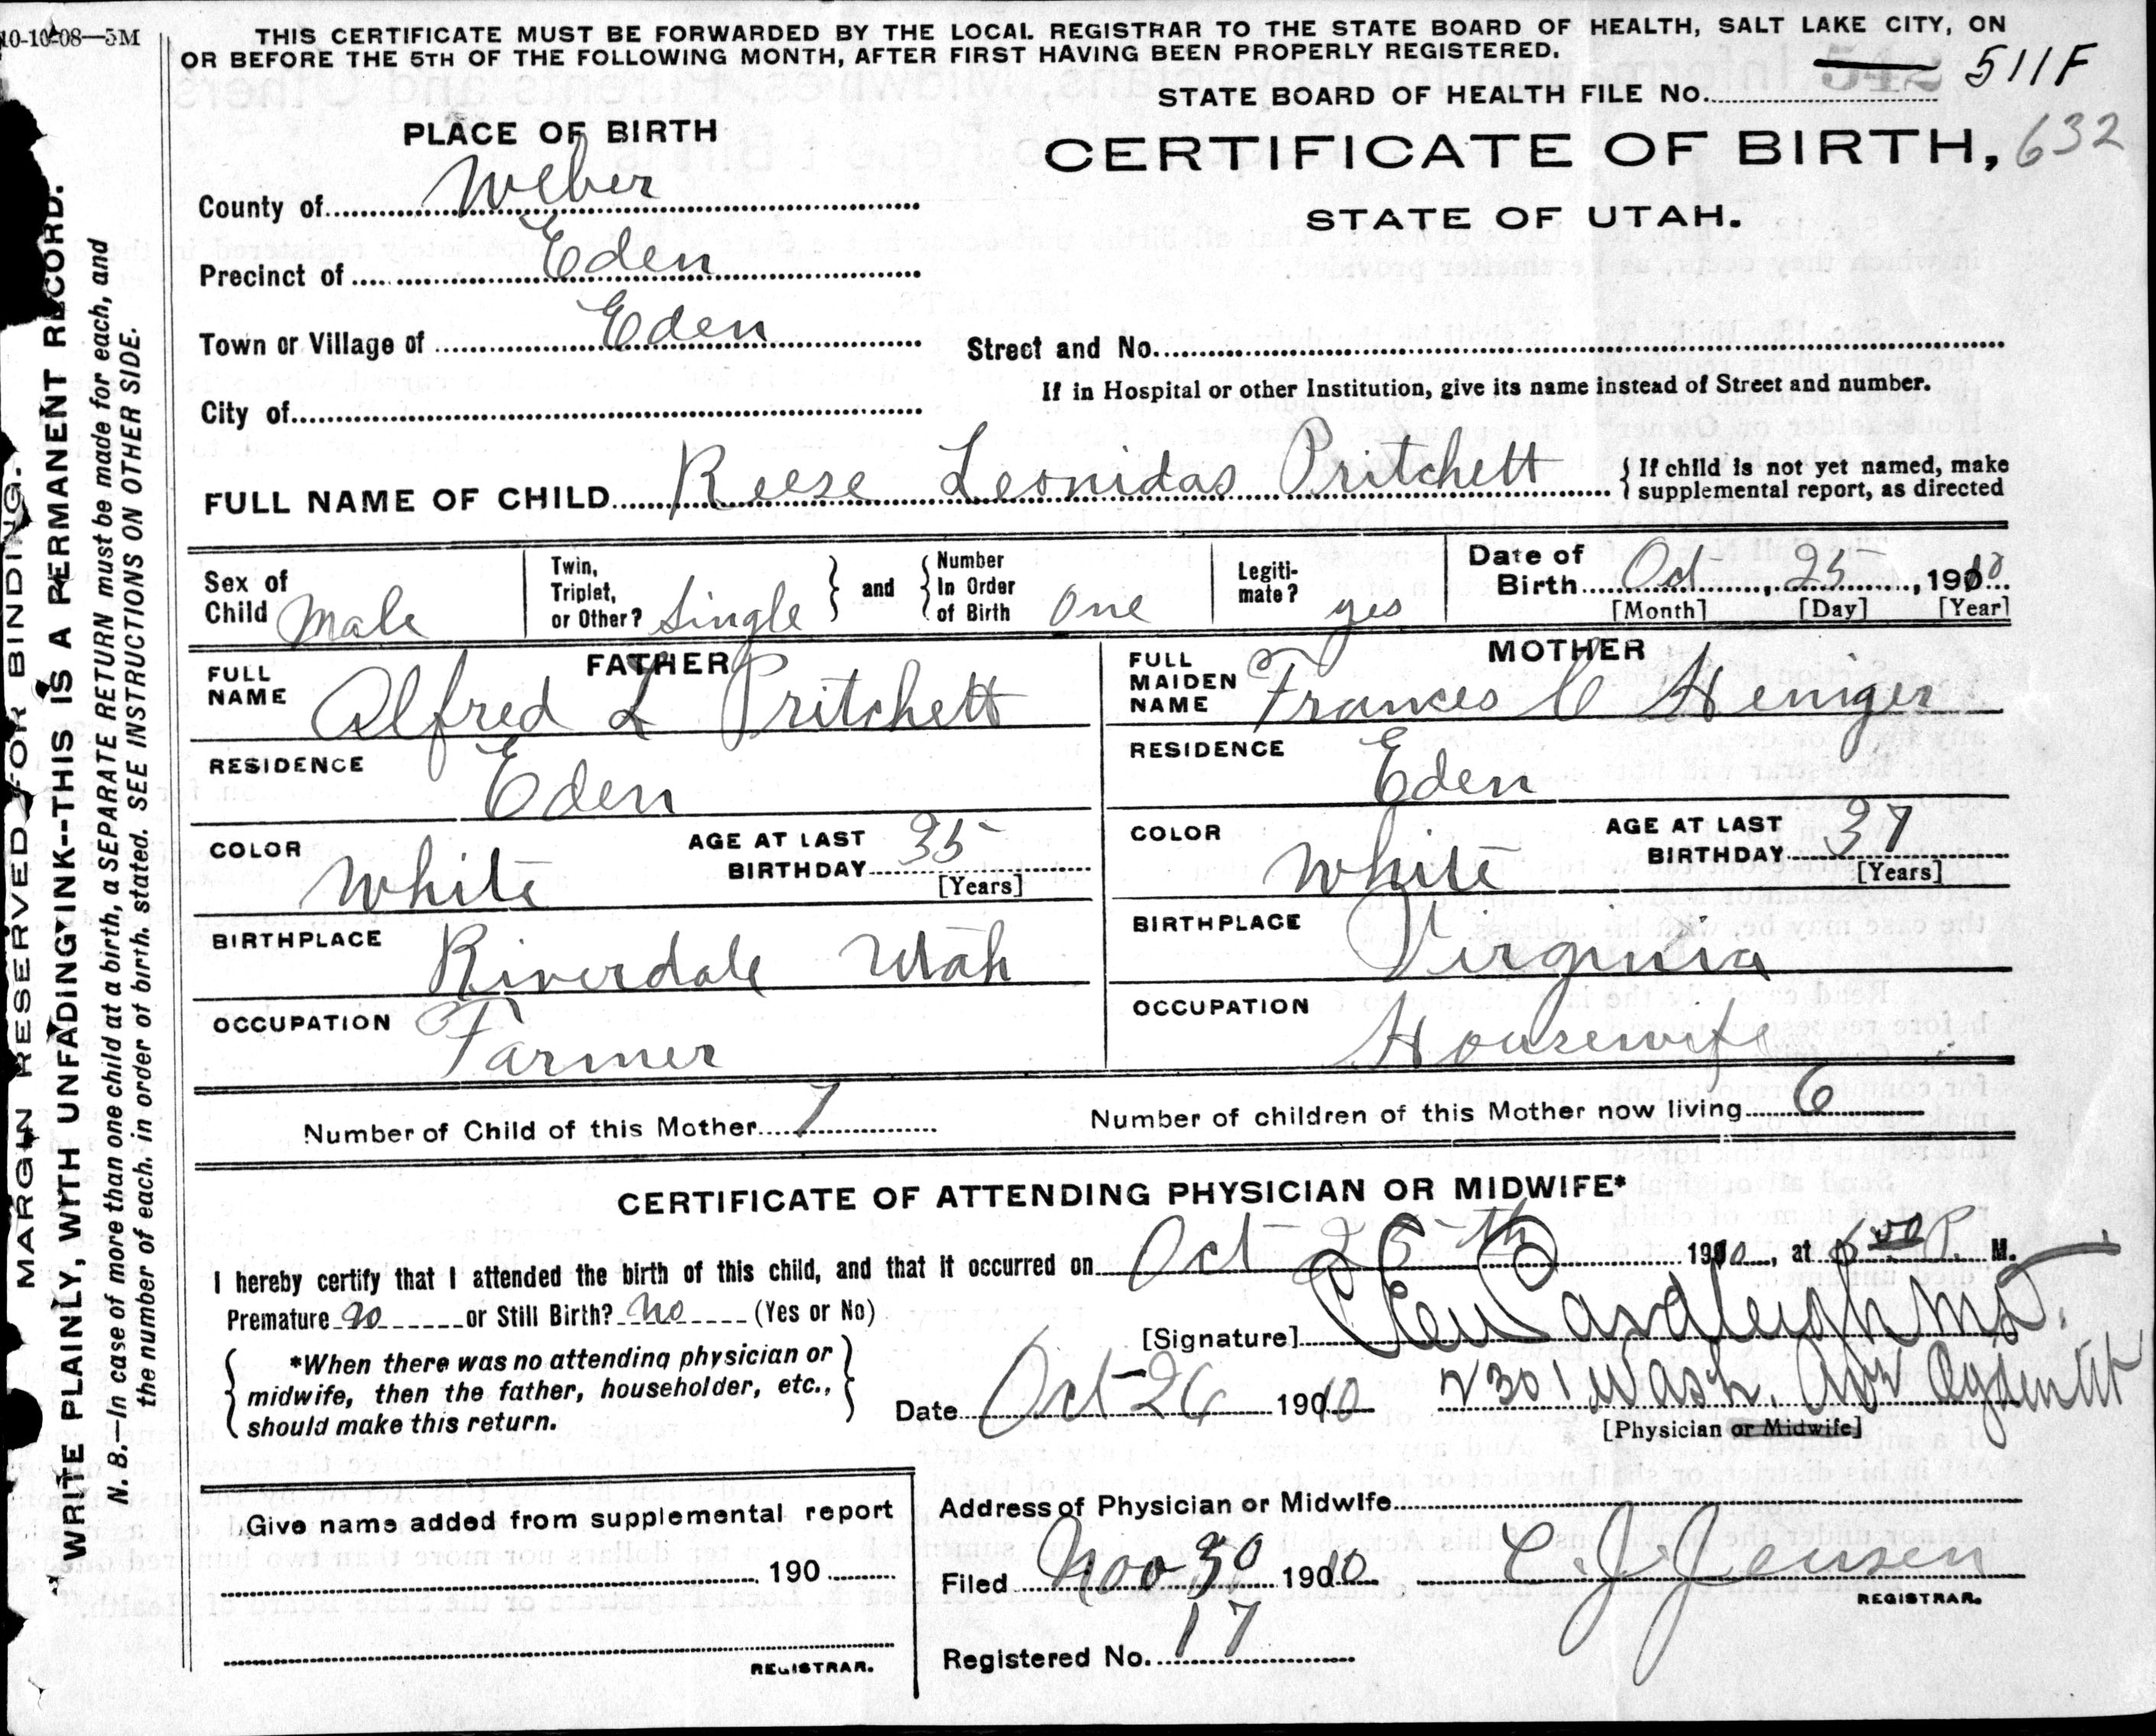 10-10-08—5M
THIS CERTIFICATE MUST BE FORWARDED BY THE LOCAL REGISTRAR TO THE STATE BOARD OF HEALTH, SALT LAKE CITY, ON
OR BEFORE THE 5TH OF THE FOLLOWING MONTH, AFTER FIRST HAVING BEEN PROPERLY REGISTERED.
511F
STATE BOARD OF HEALTH FILE No.
PLACE OF BIRTH
CERTIFICATE OF BIRTH, 632
STATE OF UTAH.
County of Weber
Precinct of Eden
Town or Village of Eden
Street and No.
If in Hospital or other Institution, give its name instead of Street and number.
City of
FULL NAME OF CHILD Reese Leonidas Pritchett { If child is not yet named, make
supplemental report, as directed
Sex of Child Male
Twin, Triplet, or Other? Single } and { Number In Order of Birth One
Legiti-mate? yes
Date of Birth Oct, 25, 1910
[Month] [Day] [Year]
FATHER
FULL NAME Alfred L Pritchett
RESIDENCE Eden
COLOR White AGE AT LAST BIRTHDAY 35
[Years]
BIRTHPLACE Riverdale Utah
OCCUPATION Farmer
MOTHER
FULL MAIDEN NAME Frances C Heniger
RESIDENCE Eden
COLOR White AGE AT LAST BIRTHDAY 37
[Years]
BIRTHPLACE Virginia
OCCUPATION Housewife
Number of Child of this Mother 7 Number of children of this Mother now living 6
CERTIFICATE OF ATTENDING PHYSICIAN OR MIDWIFE*
I hereby certify that I attended the birth of this child, and that it occurred on Oct 25th 1910, at P. M.
Premature no or Still Birth? no (Yes or No)
[Signature] M.D.
*When there was no attending physician or
midwife, then the father, householder, etc.,
should make this return.
Date Oct 26 1910 2301 Wash. Ave Ogden Ut
[Physician or Midwife]
Address of Physician or Midwife
Give name added from supplemental report
190
REGISTRAR.
Filed Nov 30 1910 C. J. Jensen
REGISTRAR.
Registered No. 17
MARGIN RESERVED FOR BINDING.
WRITE PLAINLY, WITH UNFADING INK--THIS IS A PERMANENT RECORD.
N. B.—In case of more than one child at a birth, a SEPARATE RETURN must be made for each, and
the number of each. in order of birth. stated. SEE INSTRUCTIONS ON OTHER SIDE.